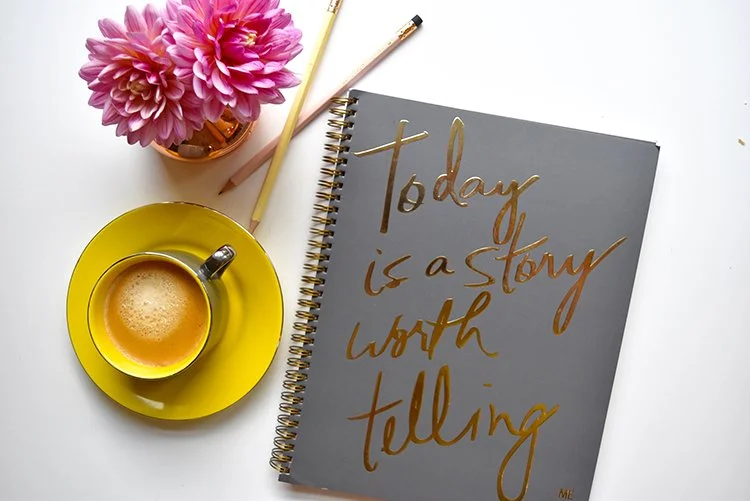 Today
is a story
worth
telling
ME